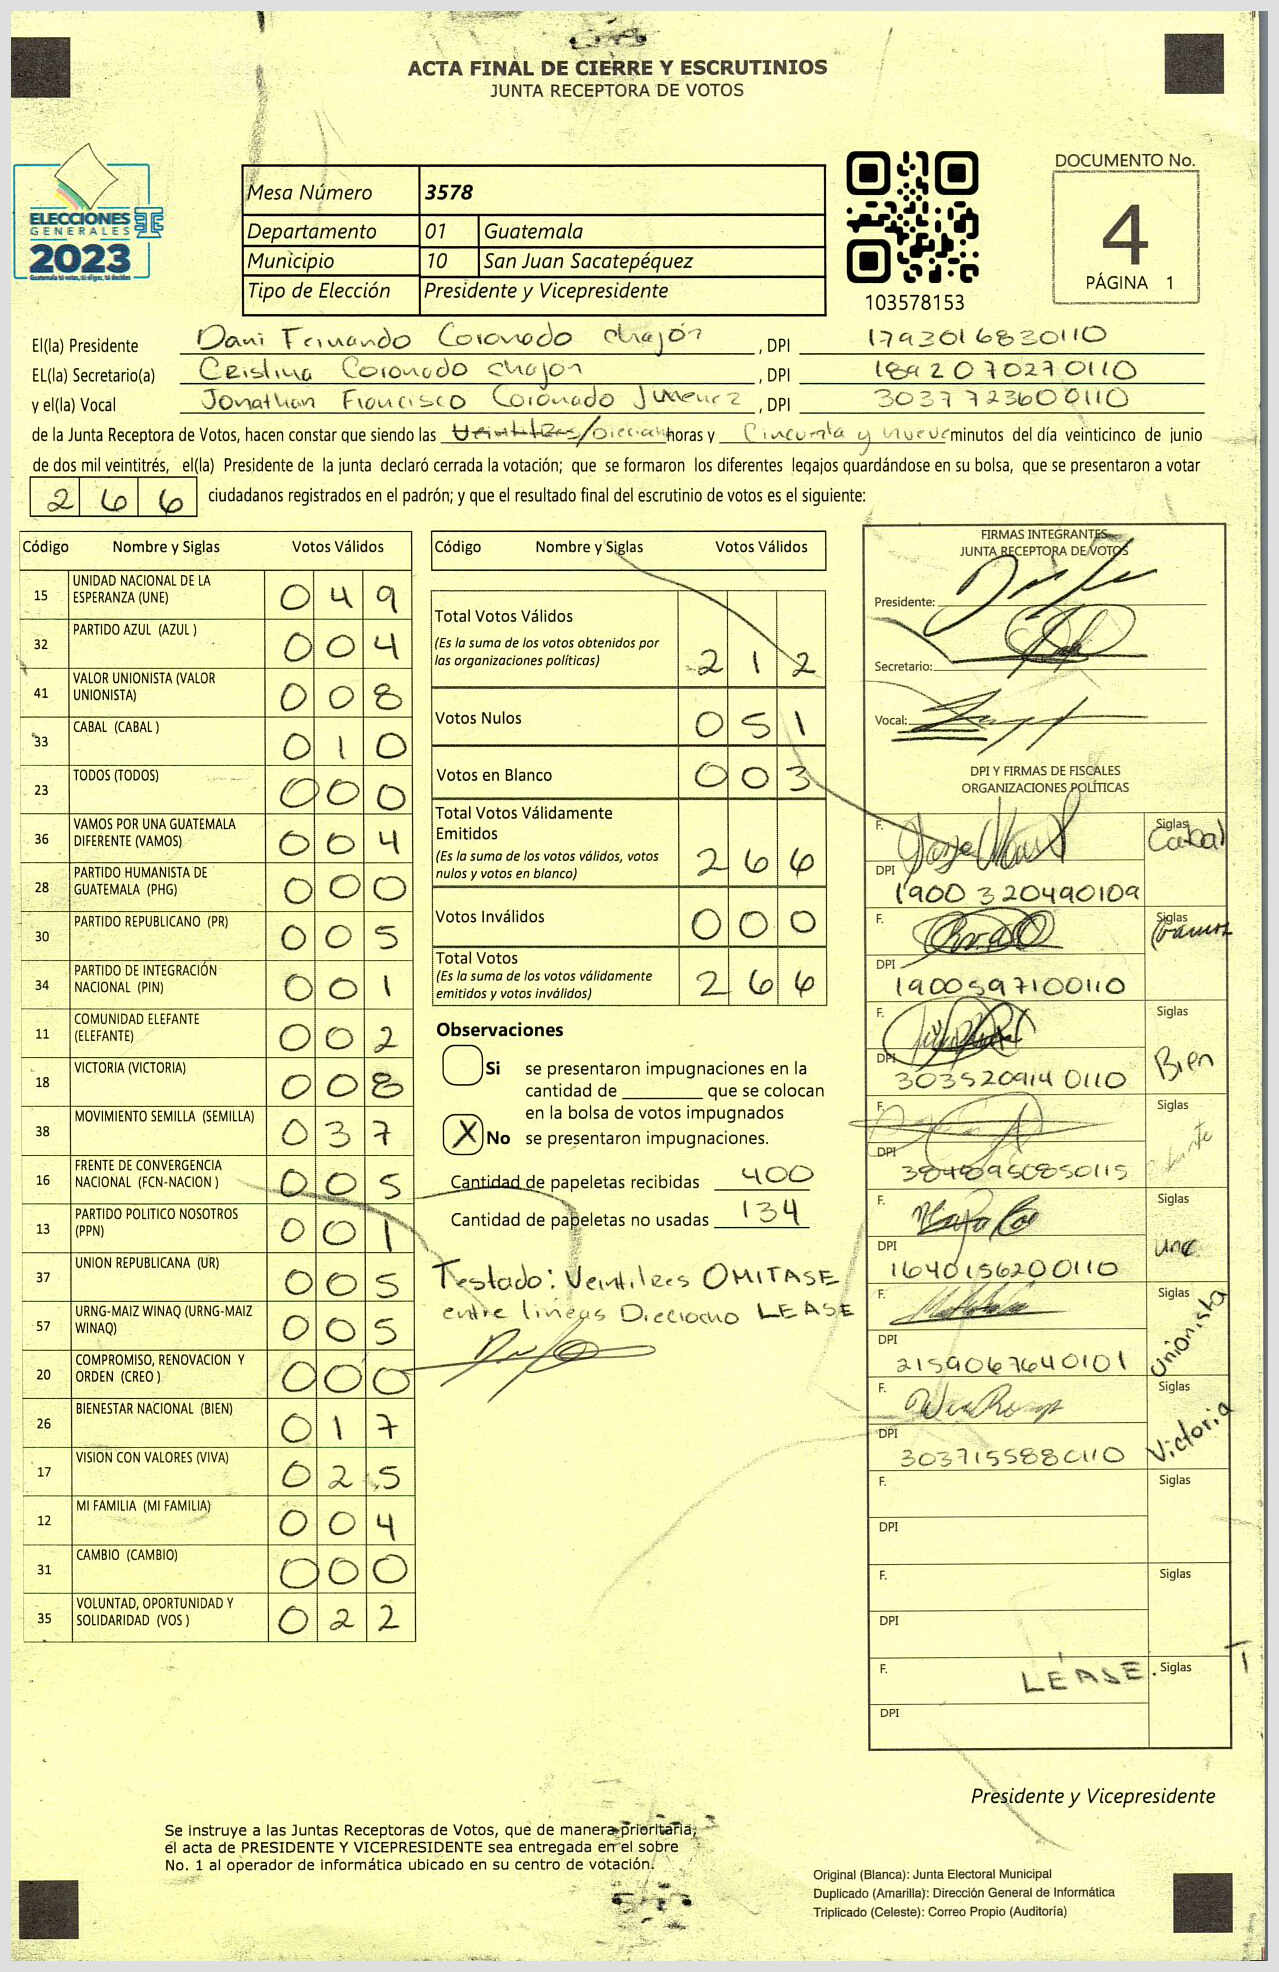 ACTA FINAL DE CIERRE Y ESCRUTINIOS
JUNTA RECEPTORA DE VOTOS
ELECCIONES
GENERALES
2023
Mesa Número 3578
Departamento 01 Guatemala
Municipio 10 San Juan Sacatepéquez
Tipo de Elección Presidente y Vicepresidente
103578153
DOCUMENTO No.
4
PÁGINA 1
El(la) Presidente Dani Fernando Coronado Chajón, DPI 1793016830110
EL(la) Secretario(a) Cristina Coronado Chajon, DPI 1892070270110
y el(la) Vocal Jonathan Francisco Coronado Jimenez, DPI 3037723600110
de la Junta Receptora de Votos, hacen constar que siendo las Veintitres/Dieciocho horas y Cincuenta y nueve minutos del día veinticinco de junio
de dos mil veintitrés, el(la) Presidente de la junta declaró cerrada la votación; que se formaron los diferentes legajos quardándose en su bolsa, que se presentaron a votar
266 ciudadanos registrados en el padrón; y que el resultado final del escrutinio de votos es el siguiente:
Código Nombre y Siglas Votos Válidos
15 UNIDAD NACIONAL DE LA
ESPERANZA (UNE) 049
32 PARTIDO AZUL (AZUL ) 004
41 VALOR UNIONISTA (VALOR
UNIONISTA) 008
33 CABAL (CABAL ) 010
23 TODOS (TODOS) 000
36 VAMOS POR UNA GUATEMALA
DIFERENTE (VAMOS) 004
28 PARTIDO HUMANISTA DE
GUATEMALA (PHG) 000
30 PARTIDO REPUBLICANO (PR) 005
34 PARTIDO DE INTEGRACIÓN
NACIONAL (PIN) 001
11 COMUNIDAD ELEFANTE
(ELEFANTE) 002
18 VICTORIA (VICTORIA) 008
38 MOVIMIENTO SEMILLA (SEMILLA) 037
16 FRENTE DE CONVERGENCIA
NACIONAL (FCN-NACION ) 005
13 PARTIDO POLITICO NOSOTROS
(PPN) 001
37 UNION REPUBLICANA (UR) 005
57 URNG-MAIZ WINAQ (URNG-MAIZ
WINAQ) 005
20 COMPROMISO, RENOVACION Y
ORDEN (CREO ) 000
26 BIENESTAR NACIONAL (BIEN) 017
17 VISION CON VALORES (VIVA) 025
12 MI FAMILIA (MI FAMILIA) 004
31 CAMBIO (CAMBIO) 000
35 VOLUNTAD, OPORTUNIDAD Y
SOLIDARIDAD (VOS ) 022
Código Nombre y Siglas Votos Válidos
Total Votos Válidos
(Es la suma de los votos obtenidos por
las organizaciones políticas) 212
Votos Nulos 051
Votos en Blanco 003
Total Votos Válidamente
Emitidos
(Es la suma de los votos válidos, votos
nulos y votos en blanco) 266
Votos Inválidos 000
Total Votos
(Es la suma de los votos válidamente
emitidos y votos inválidos) 266
Observaciones
Si se presentaron impugnaciones en la
cantidad de ________ que se colocan
en la bolsa de votos impugnados
X No se presentaron impugnaciones.
Cantidad de papeletas recibidas 400
Cantidad de papeletas no usadas 134
Testado: Veintitres OMITASE
entre lineas Dieciocho LEASE
FIRMAS INTEGRANTES
JUNTA RECEPTORA DE VOTOS
Presidente:
Secretario:
Vocal:
DPI Y FIRMAS DE FISCALES
ORGANIZACIONES POLÍTICAS
F. Siglas Cabal
DPI 1900320490109
F. Siglas Vamos
DPI 1900597100110
F. Siglas Bien
DPI 3035209140110
F. Siglas
DPI 3848950850115
F. Siglas une
DPI 1640156200110
F. Siglas Unionista
DPI 2159067640101
F. Siglas Victoria
DPI 3037155880110
F. Siglas
DPI
F. Siglas
DPI
F. LÉASE. Siglas T
DPI
Presidente y Vicepresidente
Se instruye a las Juntas Receptoras de Votos, que de manera prioritaria,
el acta de PRESIDENTE Y VICEPRESIDENTE sea entregada en el sobre
No. 1 al operador de informática ubicado en su centro de votación.
Original (Blanca): Junta Electoral Municipal
Duplicado (Amarilla): Dirección General de Informática
Triplicado (Celeste): Correo Propio (Auditoría)